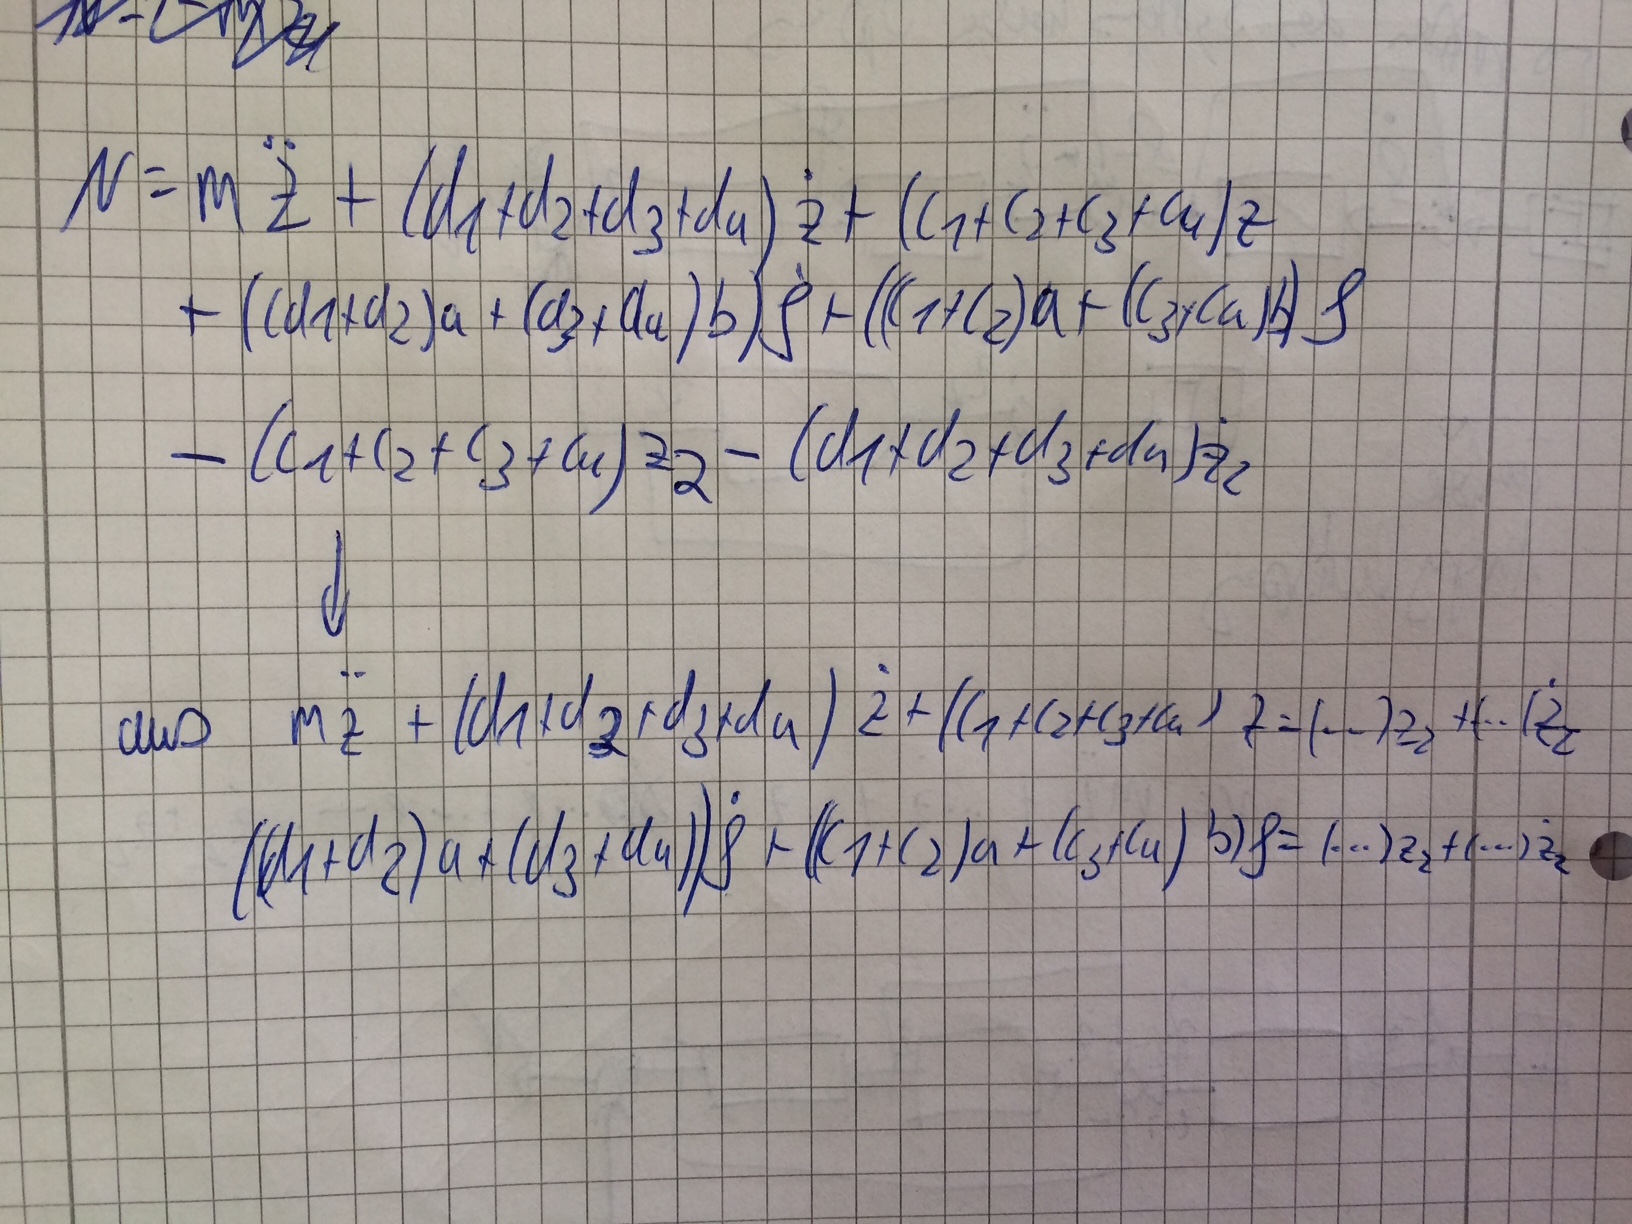 N = m z̈ + (d1+d2+d3+d4) ż + (c1+c2+c3+c4) z
+ ((d1+d2)a + (d3+d4)b) ϱ̇ + ((c1+c2)a + (c3+c4)b) ϱ
− (c1+c2+c3+c4) z2 − (d1+d2+d3+d4) ż2
↓
aus m z̈ + (d1+d2+d3+d4) ż + (c1+c2+c3+c4) z = (...) z2 + (...( ż2
((d1+d2)a + (d3+d4)) ϱ̇ + ((c1+c2)a + (c3+c4) b) ϱ = (...) z2 + (...) ż2